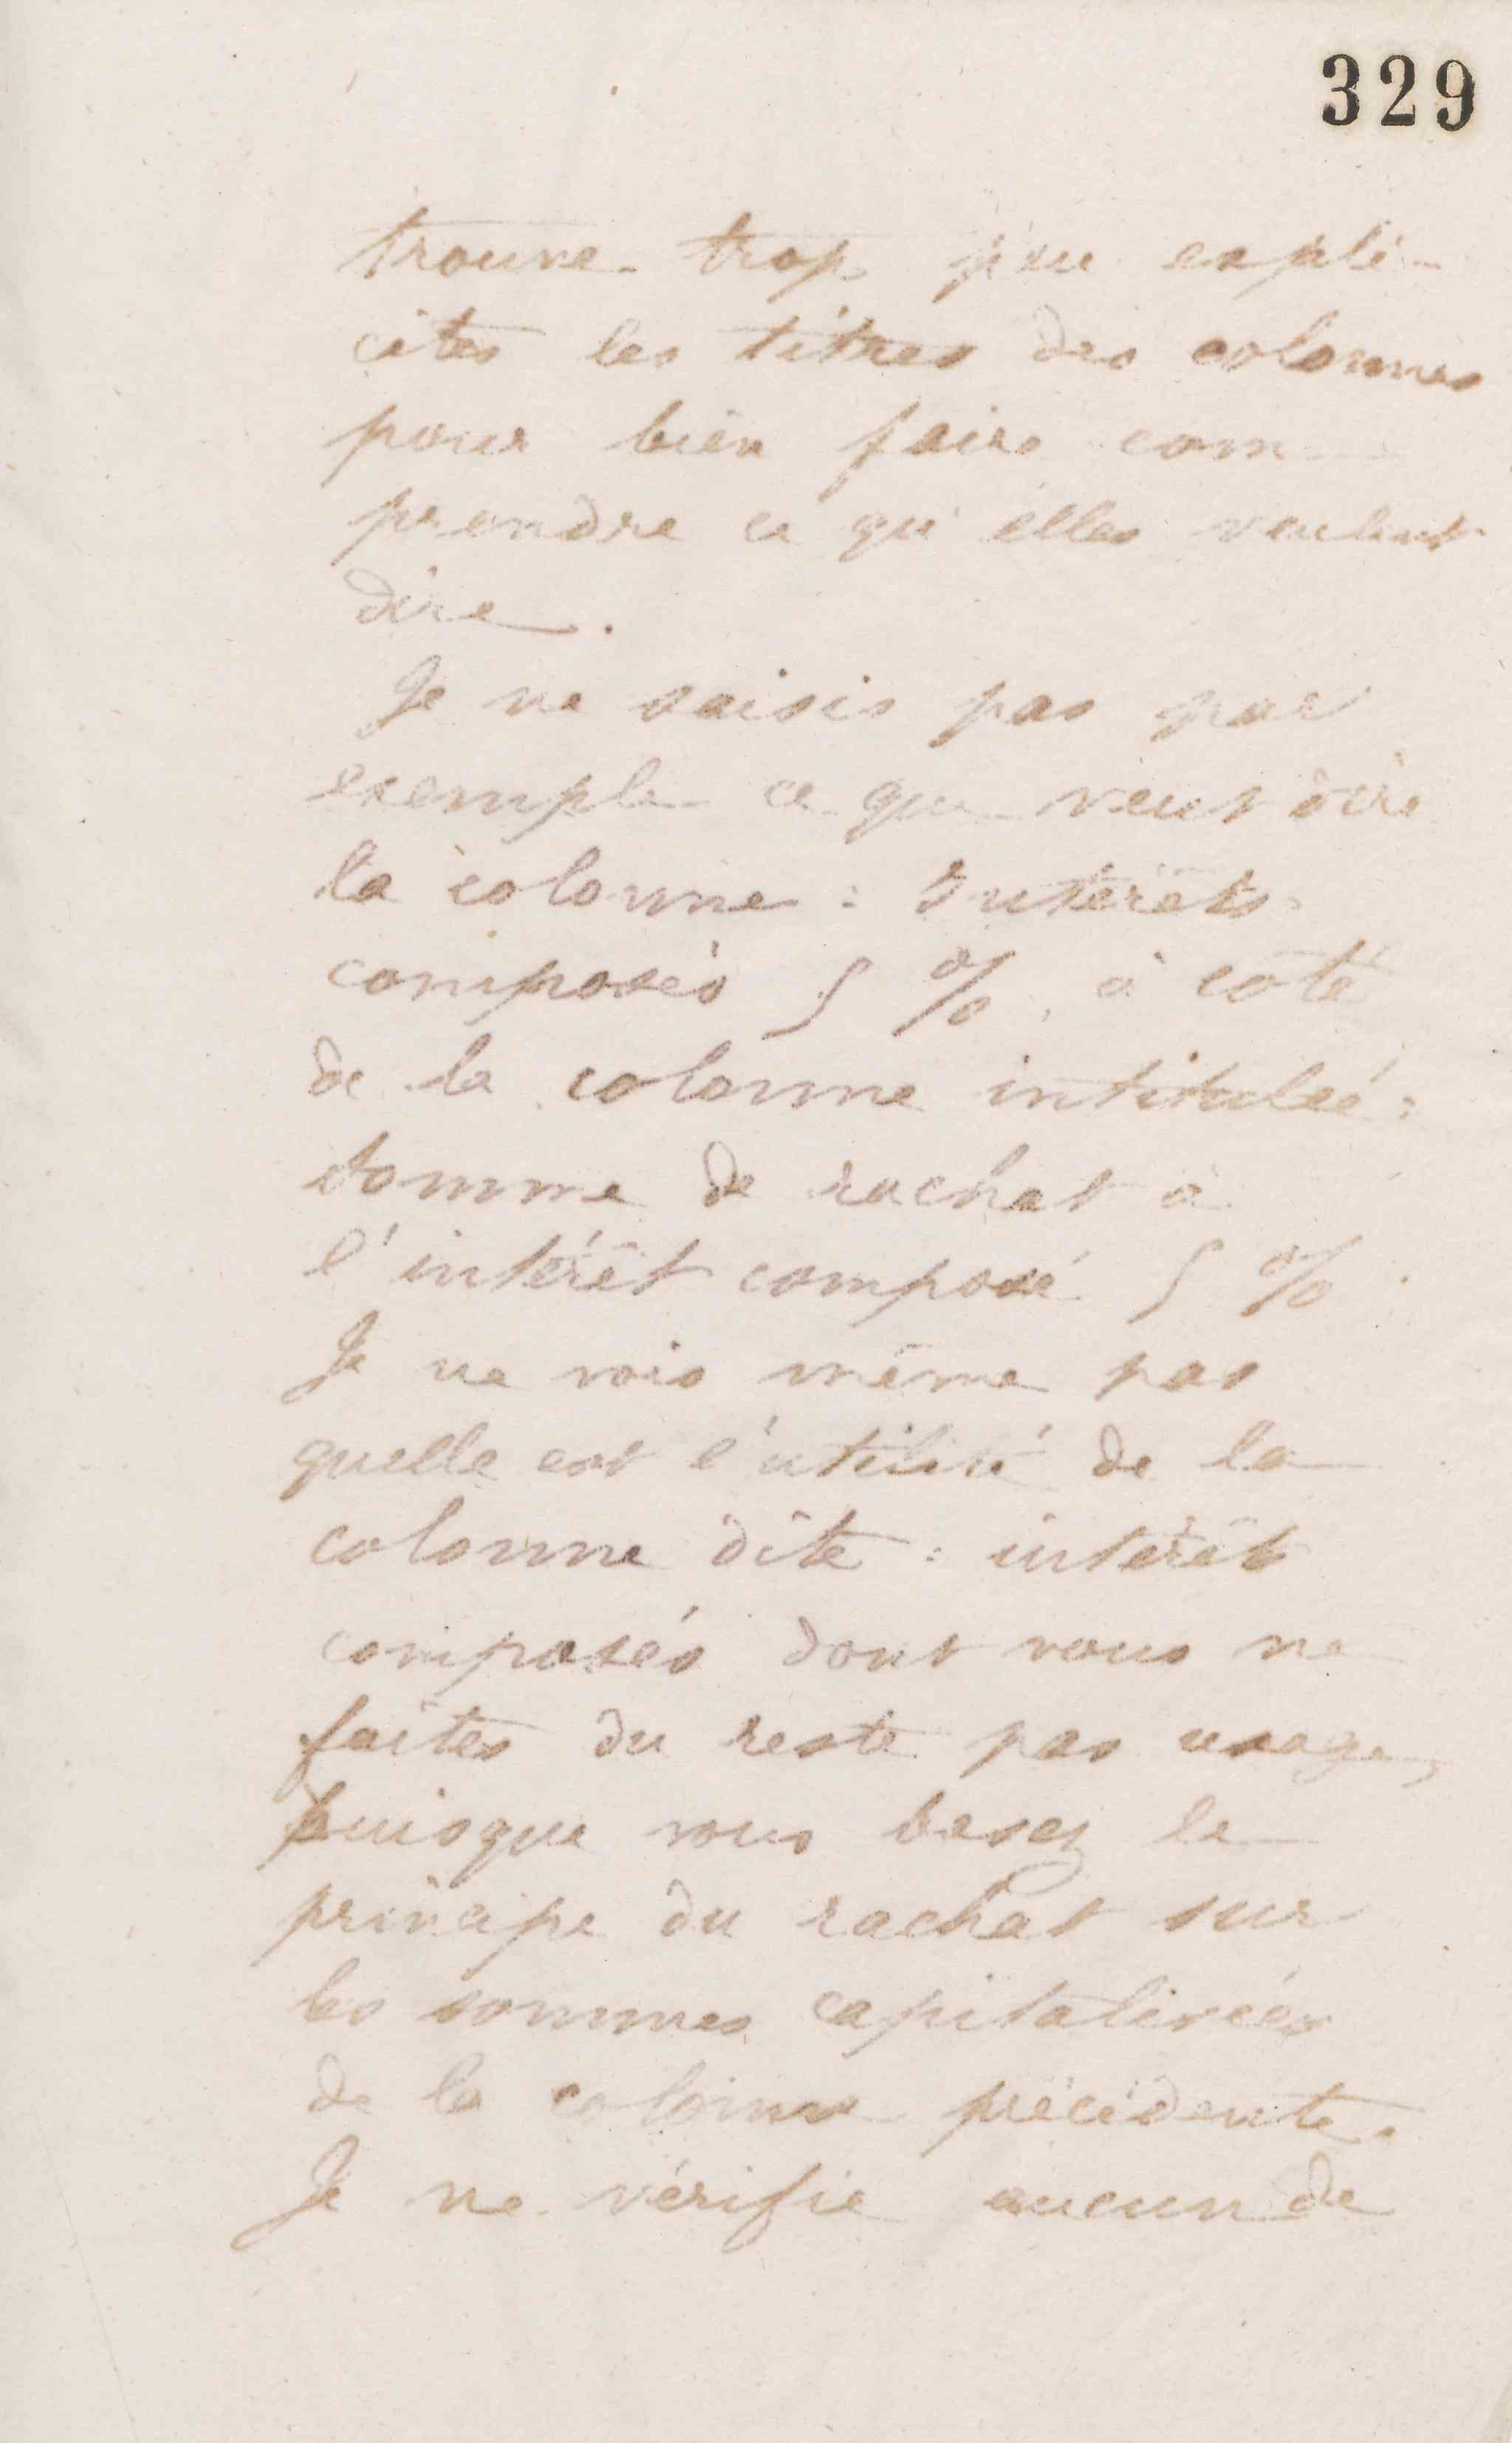 329
trouve trop peu expli-
cites les titres des colonnes
pour bien faire com-
prendre ce qu'elles veulent
dire.
Je ne saisis pas par
exemple ce que veut dire
la colonne : Intérêts
composés 5 %, à côté
de la colonne intitulée :
Somme de rachat à
l'intérêt composé 5 %.
Je ne vois même pas
quelle est l'utilité de la
colonne dite : intérêts
composés dont vous ne
faites du reste pas usage,
puisque vous basez le
principe du rachat sur
les sommes capitalisées
de la colonne précédente.
Je ne vérifie aucun de